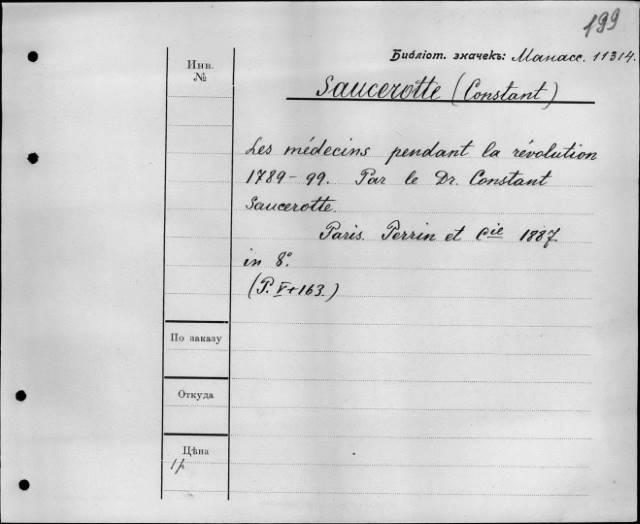 199
Библіот. значекъ: Манасс. 11314.
Инв.
№
Saucerotte (Constant)
Les médecins pendant la révolution
1789-99. Par le Dr. Constant
Saucerotte.
Paris. Perrin et Cie 1887.
in 8°.
(P. V+163.)
По заказу
Откуда
Цѣна
1р